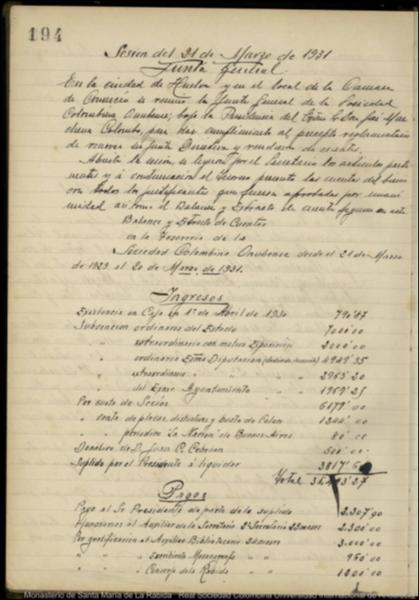 194
Sesion del 21 de Marzo de 1931
Junta General
En la ciudad de Huelva y en el local de la Camara
de Comercio se reunio la Junta General de la Sociedad
Colombina Onubense, bajo la Presidencia del Don José Mar-
chena Colombo, para dar cumplimiento al precepto reglamentario
de renovar su Junta Directiva y rendicion de cuentas.
Abierta la sesion, se leyeron por el Secretario los articulos perti-
nentes y á continuacion el Tesorero presento las cuentas del bienio
con todos los justificantes que fueron aprobadas por unani-
midad asi como el Balance y Extracto de cuentas
Balance y Extracto de Cuentas
en la Tesoreria de la
Sociedad Colombina Onubense desde el 21 de Marzo
de 1929 al 20 de Marzo de 1931.
Ingresos
Existencia en Caja en 1º de Abril de 1930 790'87
Subvencion ordinaria del Estado 7000'00
" extraordinaria con motivo Exposición 2000'00
" ordinaria Exma Diputacion 4949'35
" extraordinaria " " 2963'20
" del Exmo Ayuntamiento " " 1969'25
Por cuota de Socios 6179'00
" venta de placas, distintivos y busto de Colon 1300'00
" periodico "La Nacion" de Buenos Aires 80'00
Donativo de D. Juan C. Cebrian 500'00
Suplido por el Presidente á liquidar
Total
Pagos
Pago al Sr Presidente de parte de lo suplido 2.307'90
Honorarios al Auxiliar de la Secretaria 2.300'00
Por gratificación al Auxiliar Bibliotecario 24 meses 3.000'00
" " Escribiente Mecanografo " " 950'00
" " Conserje de la Rabida " " 1200'00
Monasterio de Santa María de La Rábida. Real Sociedad Colombina Onubense. Universidad Internacional de Andalucía